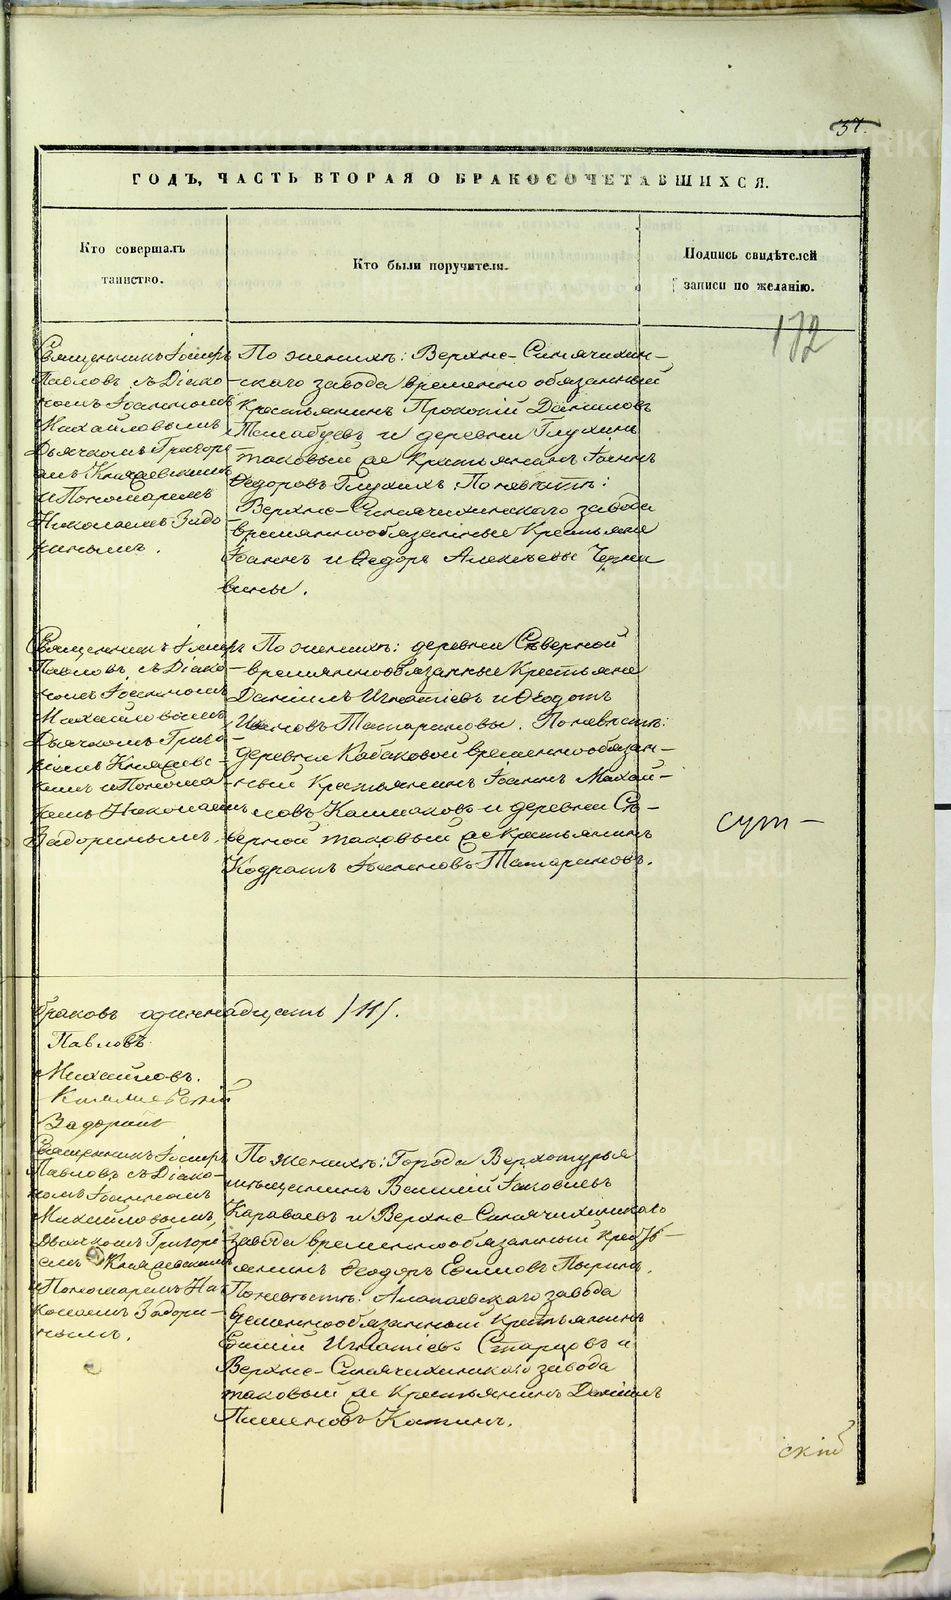 37.
ГОДЪ, ЧАСТЬ ВТОРАЯ О БРАКОСОЧЕТАВШИХСЯ.
Кто совершалъ
таинство.
Кто были поручители.
Подпись свидѣтелей
записи по желанію.
172
Священникъ Іосифъ
Павловъ съ Діако-
номъ Іоанномъ
Михайловымъ
Дьячкомъ Григорі-
емъ Княжевскимъ
и Пономаремъ
Николаемъ Задо-
ринымъ.
По женихѣ: Верхне-Синячихин-
скаго завода временно обязанный
крестьянинъ Прокопій Даниловъ
и деревни Глухихъ
таковый же Крестьянинъ Іоаннъ
Ѳедоровъ Глухихъ; По невѣстѣ:
Верхне-Синячихинскаго завода
временнообязанные Крестьяне
Іоаннъ и Ѳедоръ Алексѣевы
Священникъ Іосифъ
Павловъ, съ Діако-
номъ Іоанномъ
Михайловымъ
Дьячкомъ Григо-
ріемъ Княжевс-
кимъ и Понома-
ремъ Николаемъ
Задоринымъ.
По женихѣ: деревни Сѣверной
временнообязанные Крестьяне
Даніилъ Игнатіевъ и Ѳедотъ
Ивановъ Татариновы. По невѣстѣ:
деревни Кабаковой временнообязан-
ный Крестьянинъ Іоаннъ Михай-
ловъ и деревни Сѣ-
верной таковый же Крестьянинъ
Кодратъ Іоанновъ Татариновъ.
сут-
браковъ одиннадцать /11/.
Павловъ
Михайловъ.
Княжевскій
Задоринъ
Священникъ Іосифъ
Павловъ, съ Діако-
номъ Іоанномъ
Михайловымъ,
Дьячкомъ Григорі-
емъ Княжевскимъ
и Пономаремъ Ни-
колаемъ Задори-
нымъ.
По женихѣ: Города Верхотурья
мѣщанинъ Василій Іаковлевъ
Караваевъ и Верхне-Синячихинскаго
завода временнообязанный Кресть-
янинъ Ѳеодоръ Ефимовъ Пыринъ.
По невѣстѣ: Алапаевскаго завода
временнообязанный Крестьянинъ
Игнатіевъ Старцовъ и
Верхне-Синячихинскаго завода
таковый же Крестьянинъ Даніилъ
Пименовъ
скій
METRIKI.GASO-URAL.RU